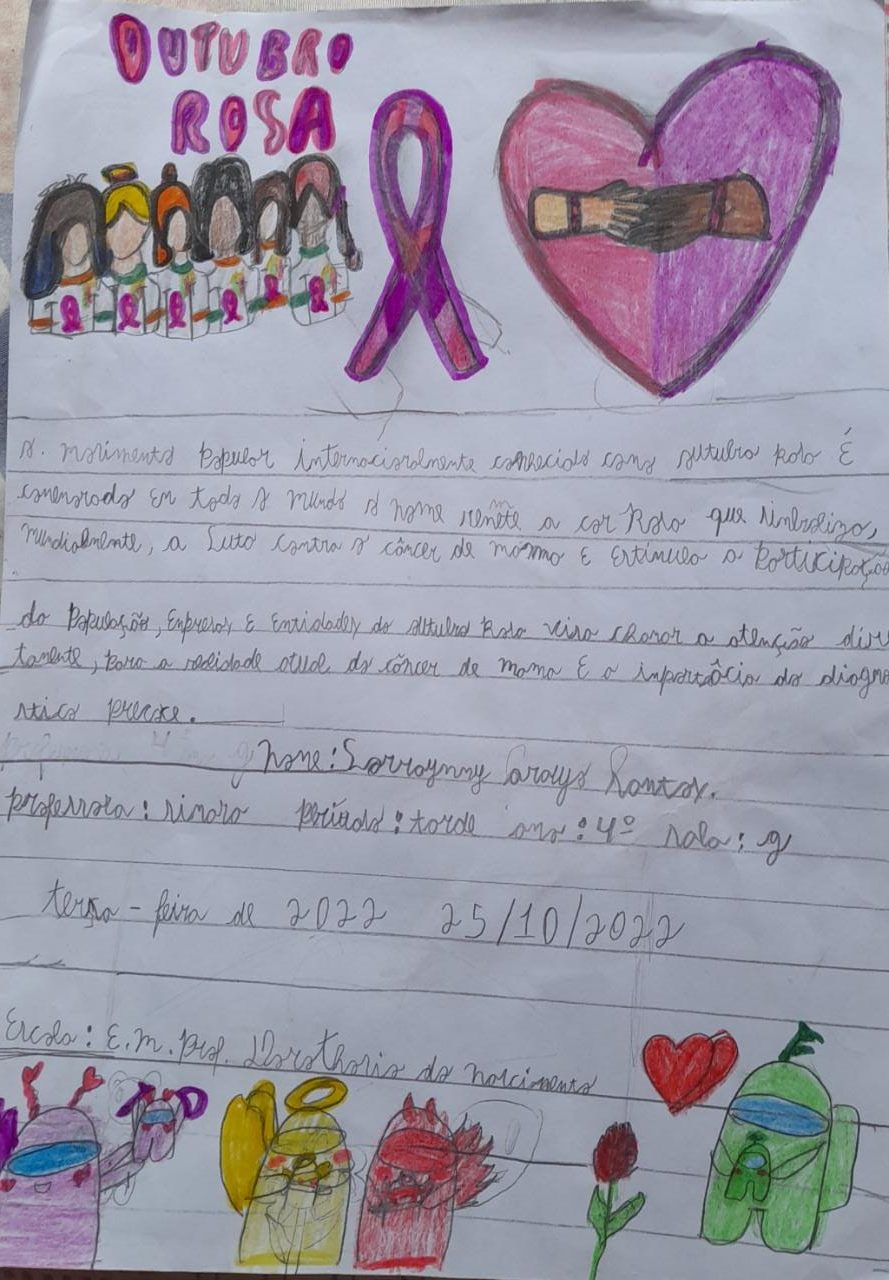 OUTUBRO
ROSA
o. movimento popular internacionalmente conhecido como outubro rosa É
comenorado em todo o mundo o nome remete a cor Rosa que simboliza,
mundialmente, a Luta contra o câncer de mama E Estímulo a Participação
da População, Empresas, E Entidades, do outubro Rosa visa chamar a atenção dire
tamente, para a realidade atual do câncer de mama E a importâcia do diagno
stico precose.
Nome: Sarraynny Soraya Santos.
professora: sinara período: tarde ano: 4º sala: g
terça-feira de 2022 25/10/2022
Escola: E.M. Prof. do nascimento